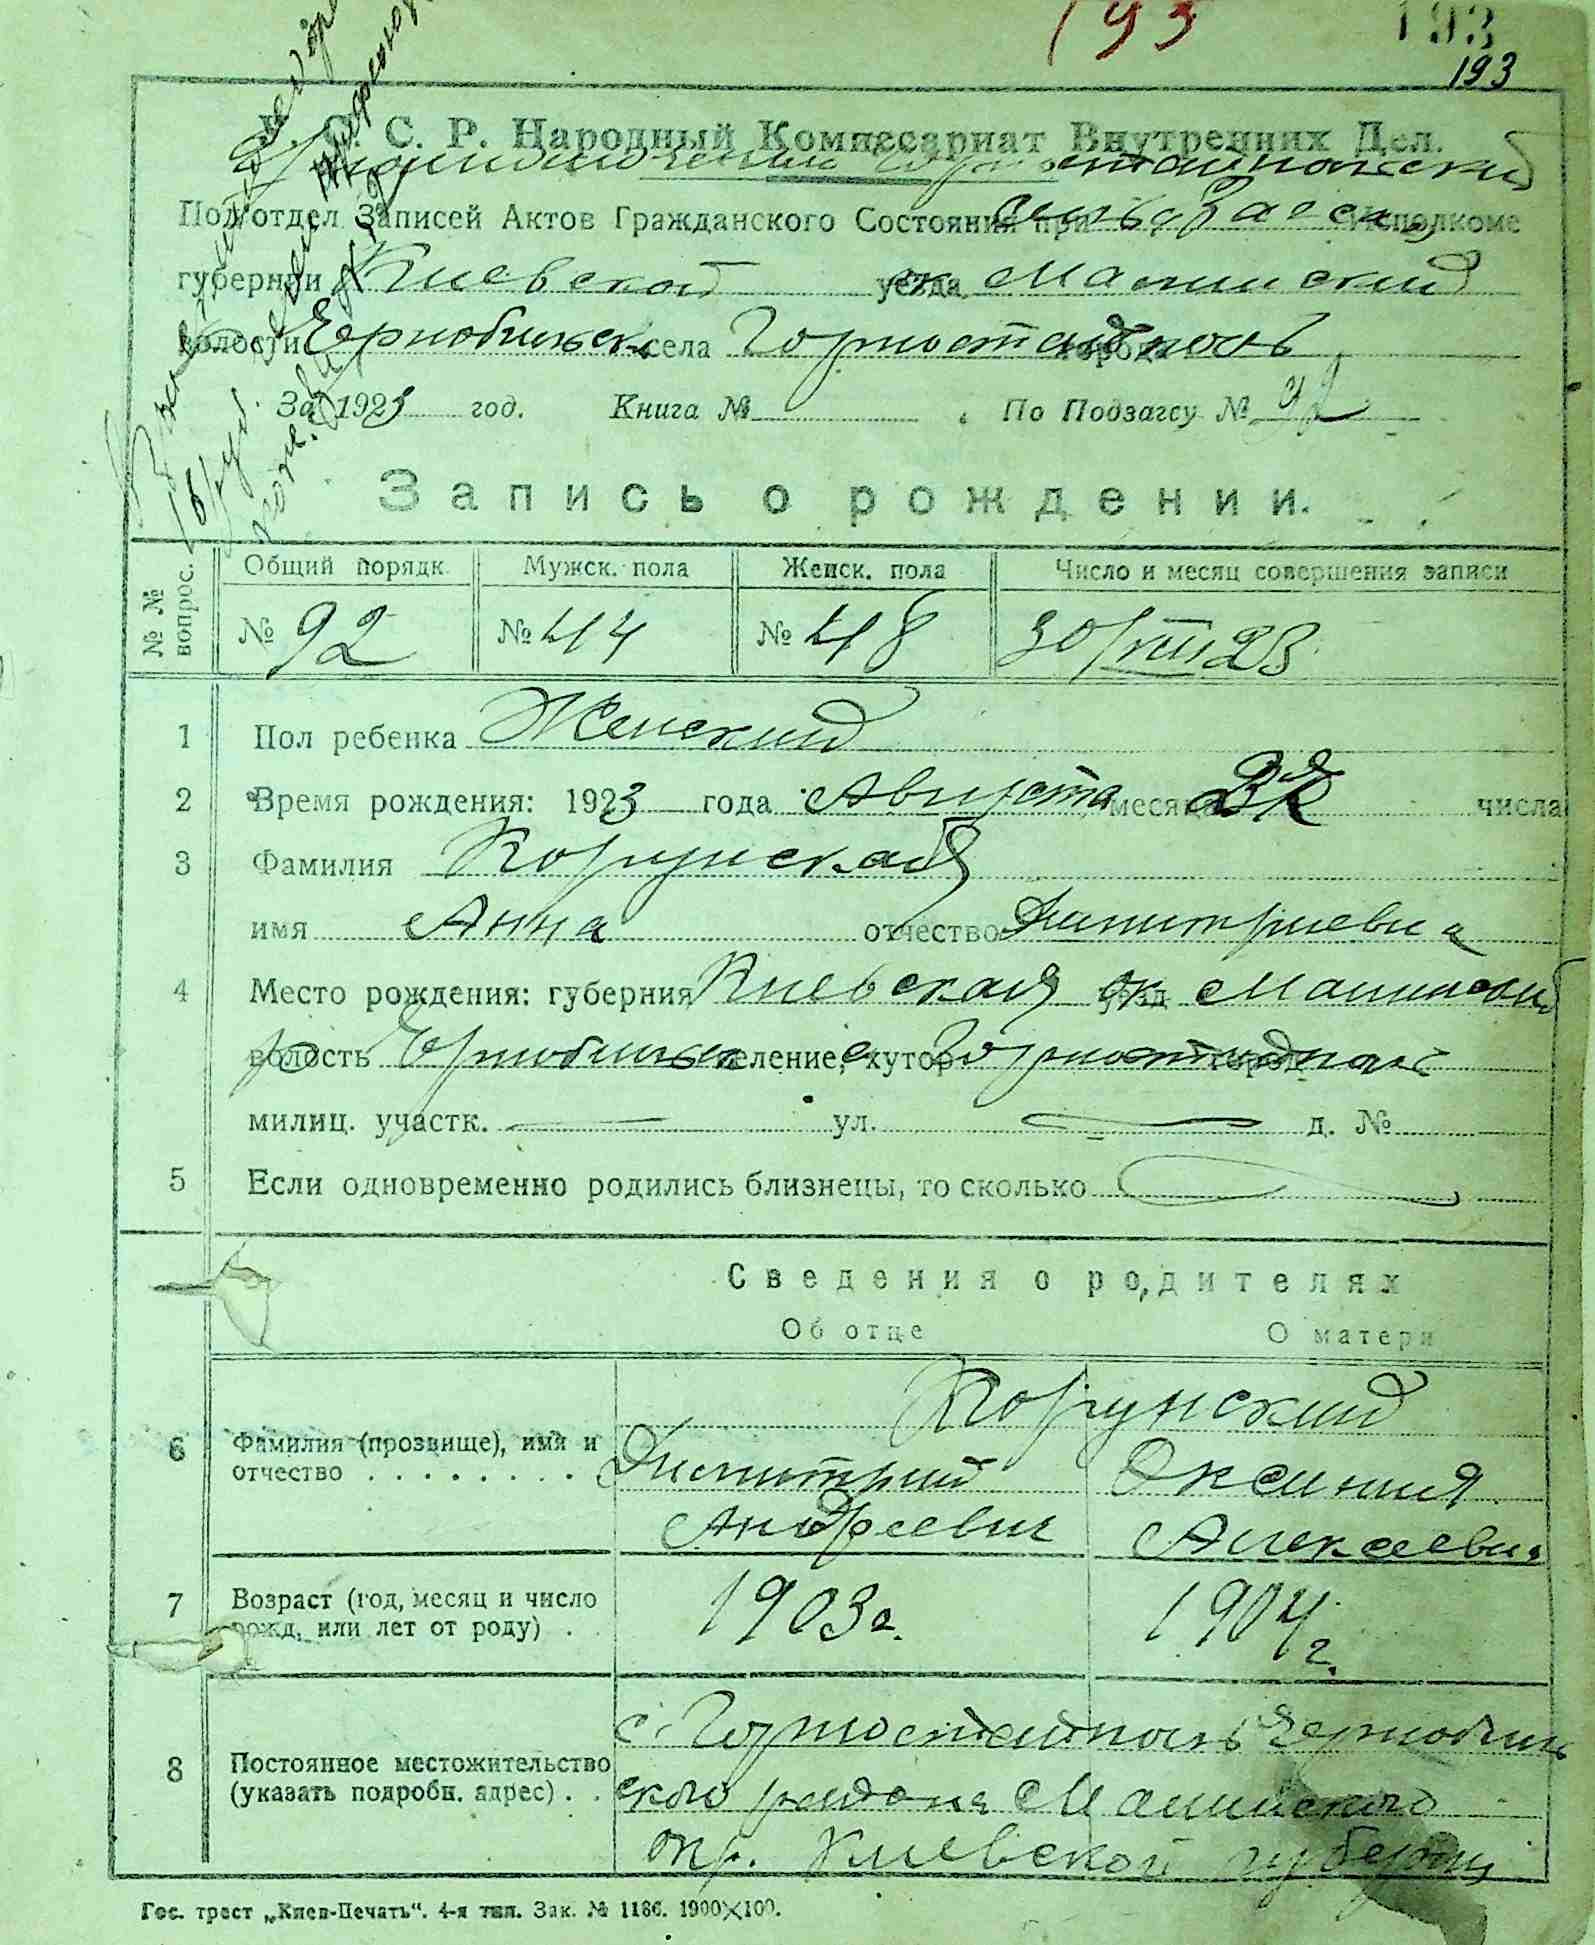 193
193
193
У. С. С. Р. Народный Комиссариат Внутренних Дел.
Подотдел Записей Актов Гражданского Состояния при Исполкоме
губернии Киевской уезда ок Малинский
волости Чернобильск села Горностайполь города
За 1923 год. Книга № По Подзагсу № 92
Запись о рождении.
№ № вопрос. Общий порядк. Мужск. пола Женск. пола Число и месяц совершения записи
№ 92 № 44 № 48 30/VIII 23
1 Пол ребенка Женский
2 Время рождения: 1923 года Августа месяца числа
3 Фамилия Коргунская
имя Анна отчество Димитриевна
4 Место рождения: губерния Киевская уезд ок Малинский
волость р Чернобильск селение, хутор с Горностайполь город
милиц. участк. — ул. — д. №
5 Если одновременно родились близнецы, то сколько
Сведения о родителях
Об отце О матери
Коргунский
6 Фамилия (прозвище), имя и Димитрий Оксиния
отчество . . . . . . . . Андреевич Алексеевна
7 Возраст (год, месяц и число 1903 г. 1904 г.
рожд. или лет от роду) .
с. Горностайполь Чернобиль
8 Постоянное местожительство
(указать подробн. адрес) . . ского района Малинского
окр. Киевской губернии
Гос. трест „Киев-Печать“. 4-я тип. Зак. № 1186. 1900×100.